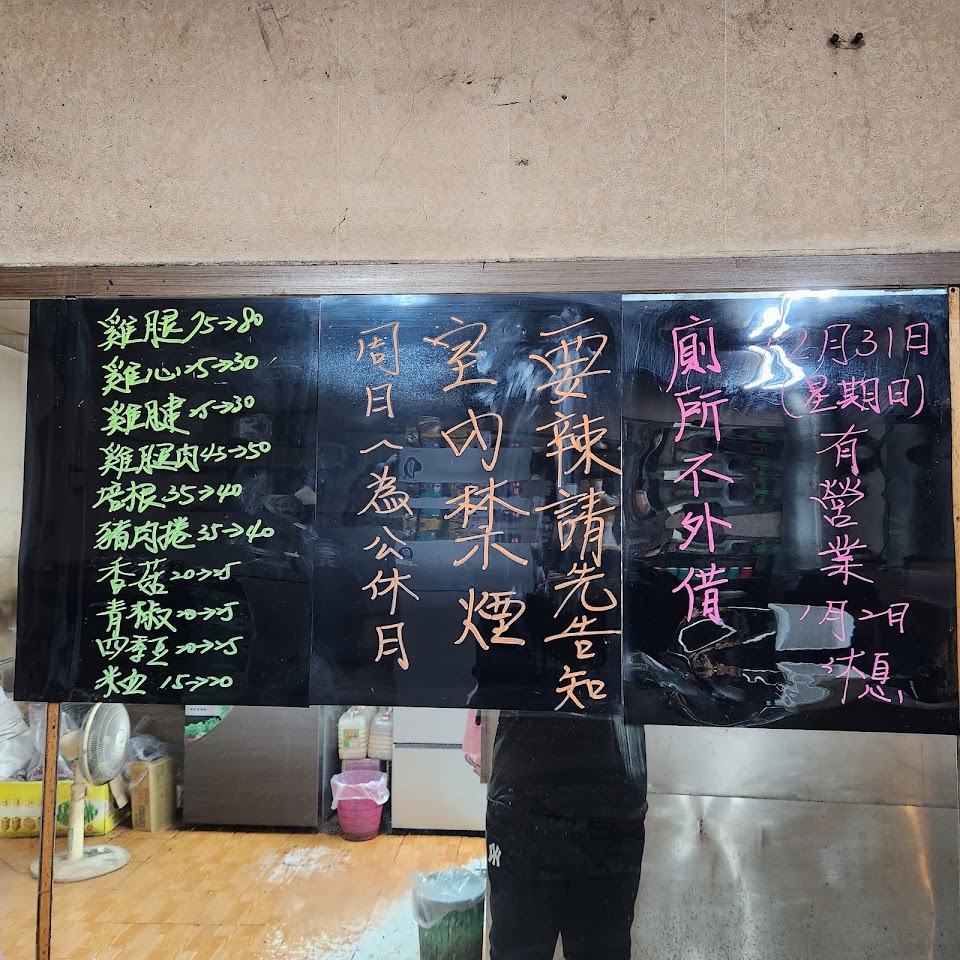 雞腿 75→80
雞心 25→30
雞腱 25→30
雞腿肉 45→50
培根 35→40
豬肉捲 35→40
香菇 20→25
青椒 20→25
四季豆 20→25
米血 15→20
要辣請先告知
室內禁煙
周日八為公休月
廁所不外借
12月31日
(星期日)
有營業
1月2日
休息